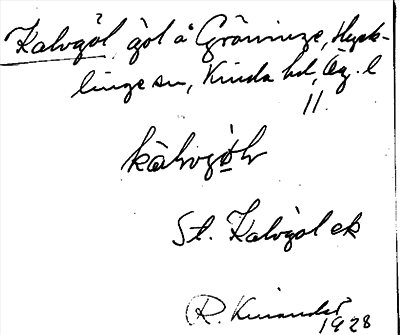 Kalvgöl, göl å Gröninge, Hyck-
linge sn, Kinda hd, Ög. l
11.
kàlvgö̀l
St. Kalvgöl ek
R. Kinander
1928